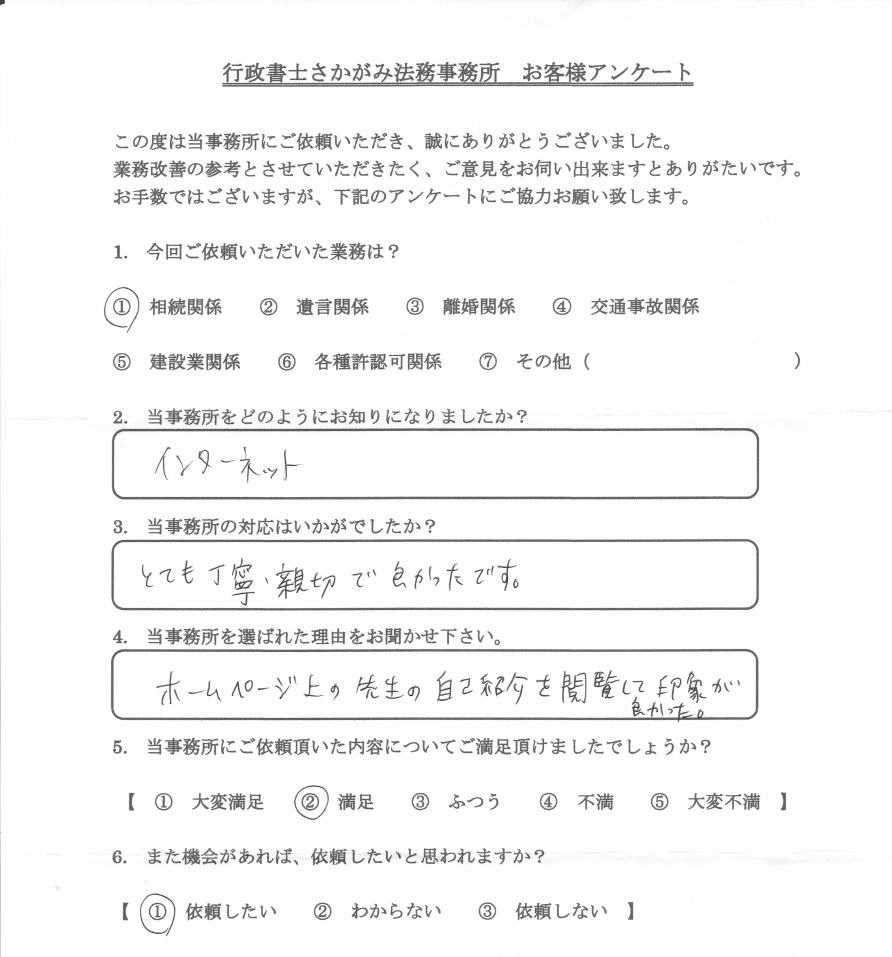 行政書士さかがみ法務事務所　お客様アンケート
この度は当事務所にご依頼いただき、誠にありがとうございました。
業務改善の参考とさせていただきたく、ご意見をお伺い出来ますとありがたいです。
お手数ではございますが、下記のアンケートにご協力お願い致します。
1.　今回ご依頼いただいた業務は？
①　相続関係　　②　遺言関係　　③　離婚関係　　④　交通事故関係
⑤　建設業関係　　⑥　各種許認可関係　　⑦　その他（　　　　　　　　　　　）
2.　当事務所をどのようにお知りになりましたか？
インターネット
3.　当事務所の対応はいかがでしたか？
とても丁寧、親切で良かったです。
4.　当事務所を選ばれた理由をお聞かせ下さい。
ホームページ上の先生の自己紹介を閲覧して印象が
良かった。
5.　当事務所にご依頼頂いた内容についてご満足頂けましたでしょうか？
【　①　大変満足　　②　満足　　③　ふつう　　④　不満　　⑤　大変不満　】
6.　また機会があれば、依頼したいと思われますか？
【　①　依頼したい　　②　わからない　　③　依頼しない　】